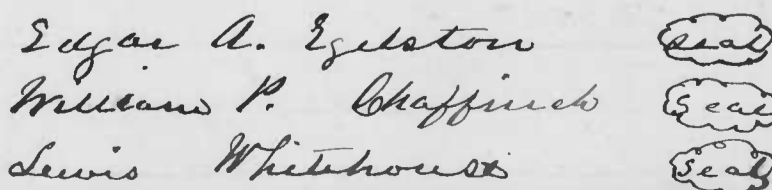 Edgar A. Egelston seal
William P. Chaffinch Seal
Lewis Whitehouse Seal